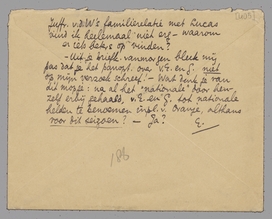 Juffr. v.d.W's familierelatie met Lucas
vind ik heelemaal niet erg – waarom
er iets beters op vinden?
– Uit je briefk. vanmorgen bleek mij
pas dat je het paragr. over v.E. en G. niet
op mijn verzoek schreef! – Wat denk je van
dit motje: na al het "nationale" door hen-
zelf erbij gehaald, v.E. en G. tot nationale
helden te benoemen inpl. v. Oranje, althans
voor dit seizoen? – Ja?
E.
186